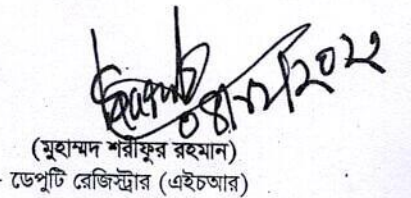 ০৪/০৮/২০২২
(মুহাম্মদ শরীফুর রহমান)
ডেপুটি রেজিস্ট্রার (এইচআর)